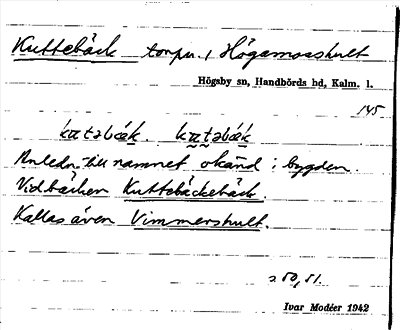 Kuttebäck torpn. i Högamosshult
Högsby sn, Handbörds hd, Kalm. l.
145
kɯtəbǽk. kɯtəbǽk
Anledn. till namnet okänd i bygden.
Vid bäcken Kuttebäckebäck.
Kallas även Vimmershult.
s. 50, 51.
Ivar Modéer 1942